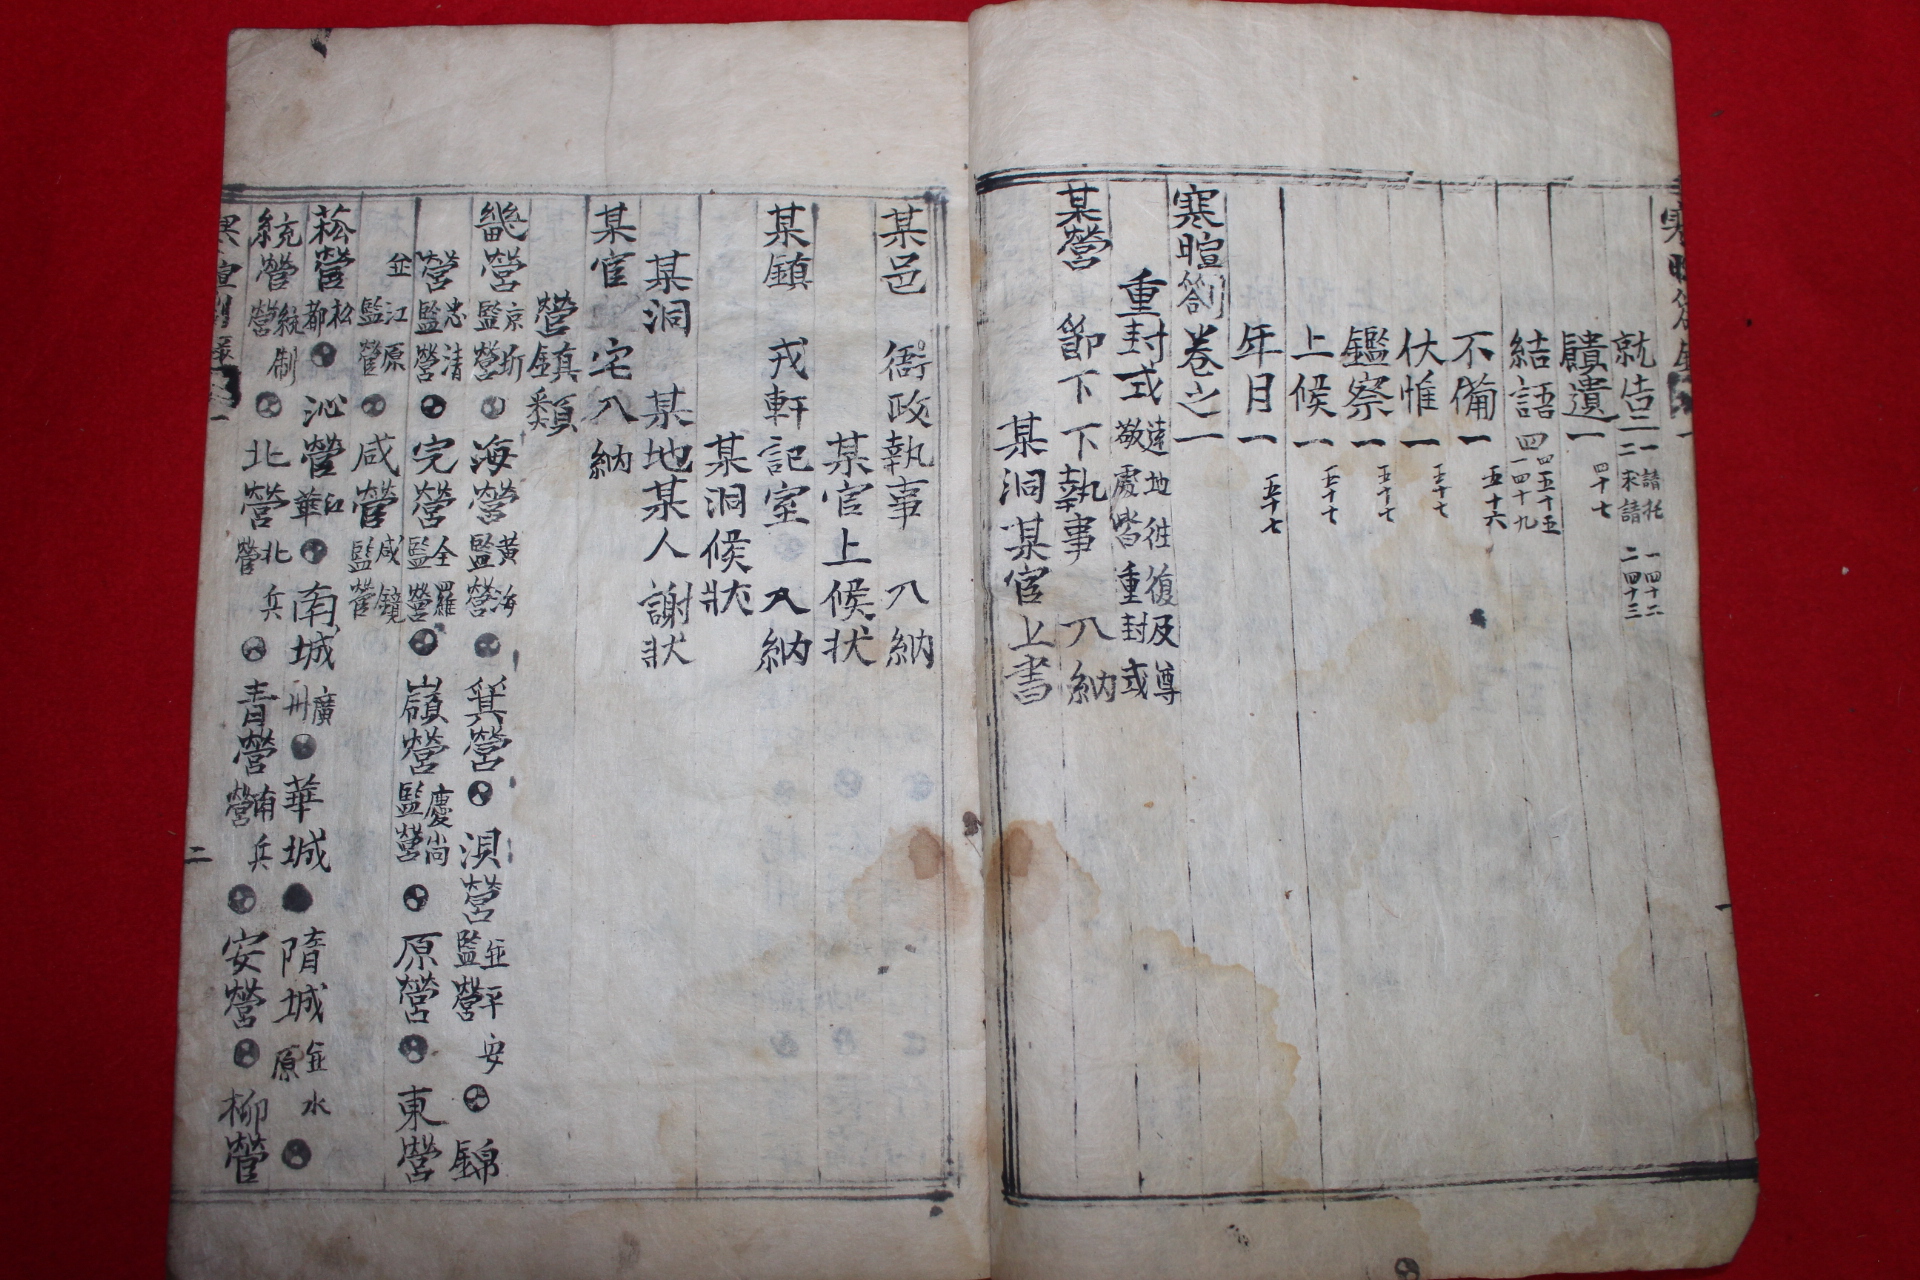 就告二 一請托 一四十二 二求請 二四十三
饋遺一 四十七
結語四 四五十五 一四十九
不備一 五十六
伏惟一 五十七
鑑察一 五十七
上候一 五十七
年月一 五十七
寒暄劄卷之一
重封式 遠地往復及尊敬處皆重封或
某營 節下下執事 入納
某洞某官上書
某邑 衙政執事 入納
某官上候状
某鎮 戎軒記室 入納
某洞候狀
某洞 某地某人謝狀
某官宅入納
營鎮類
畿營 京圻監營 海營 黃海監營 箕營 浿營 並平安監營 錦
營 忠清監營 完營 全羅監營 嶺營 慶尚監營 原營 東營
並江原監營 咸營 咸鏡監營
菘營 松都 沁營 江華 南城 廣州 華城 隋城 並水原
統營 統制營 北營 北兵營 青營 南兵營 安營 柳營
二